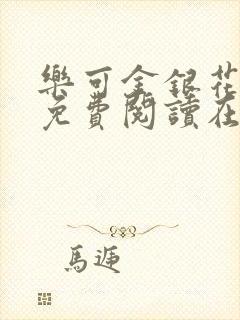 樂可金銀花
免費閱讀在
馬遊